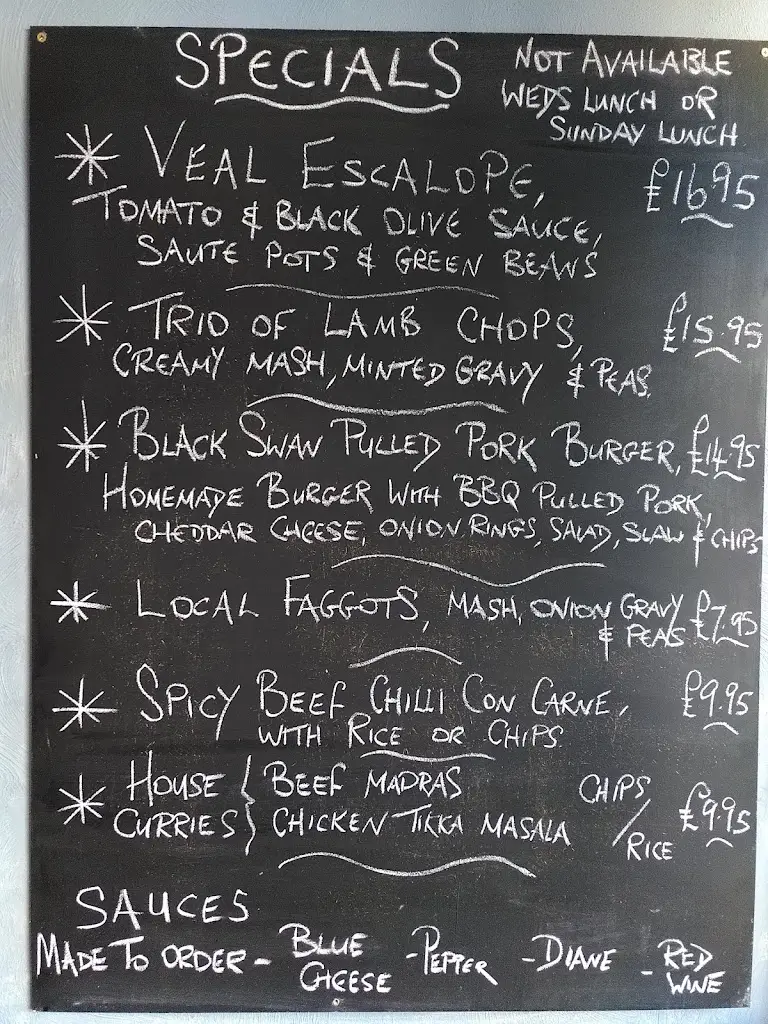 SPECIALS
NOT AVAILABLE
WEDS LUNCH OR
SUNDAY LUNCH
VEAL ESCALOPE, £16.95
TOMATO & BLACK OLIVE SAUCE,
SAUTE POTS & GREEN BEANS
TRIO OF LAMB CHOPS, £15.95
CREAMY MASH, MINTED GRAVY & PEAS.
BLACK SWAN PULLED PORK BURGER, £14.95
HOMEMADE BURGER WITH BBQ PULLED PORK,
CHEDDAR CHEESE, ONION RINGS, SALAD, SLAW & CHIPS
LOCAL FAGGOTS, MASH, ONION GRAVY £7.95
& PEAS
SPICY BEEF CHILLI CON CARNE, £9.95
WITH RICE OR CHIPS
HOUSE { BEEF MADRAS CHIPS
CURRIES } CHICKEN TIKKA MASALA / RICE £9.95
SAUCES
MADE TO ORDER - BLUE CHEESE - PEPPER - DIANE - RED WINE